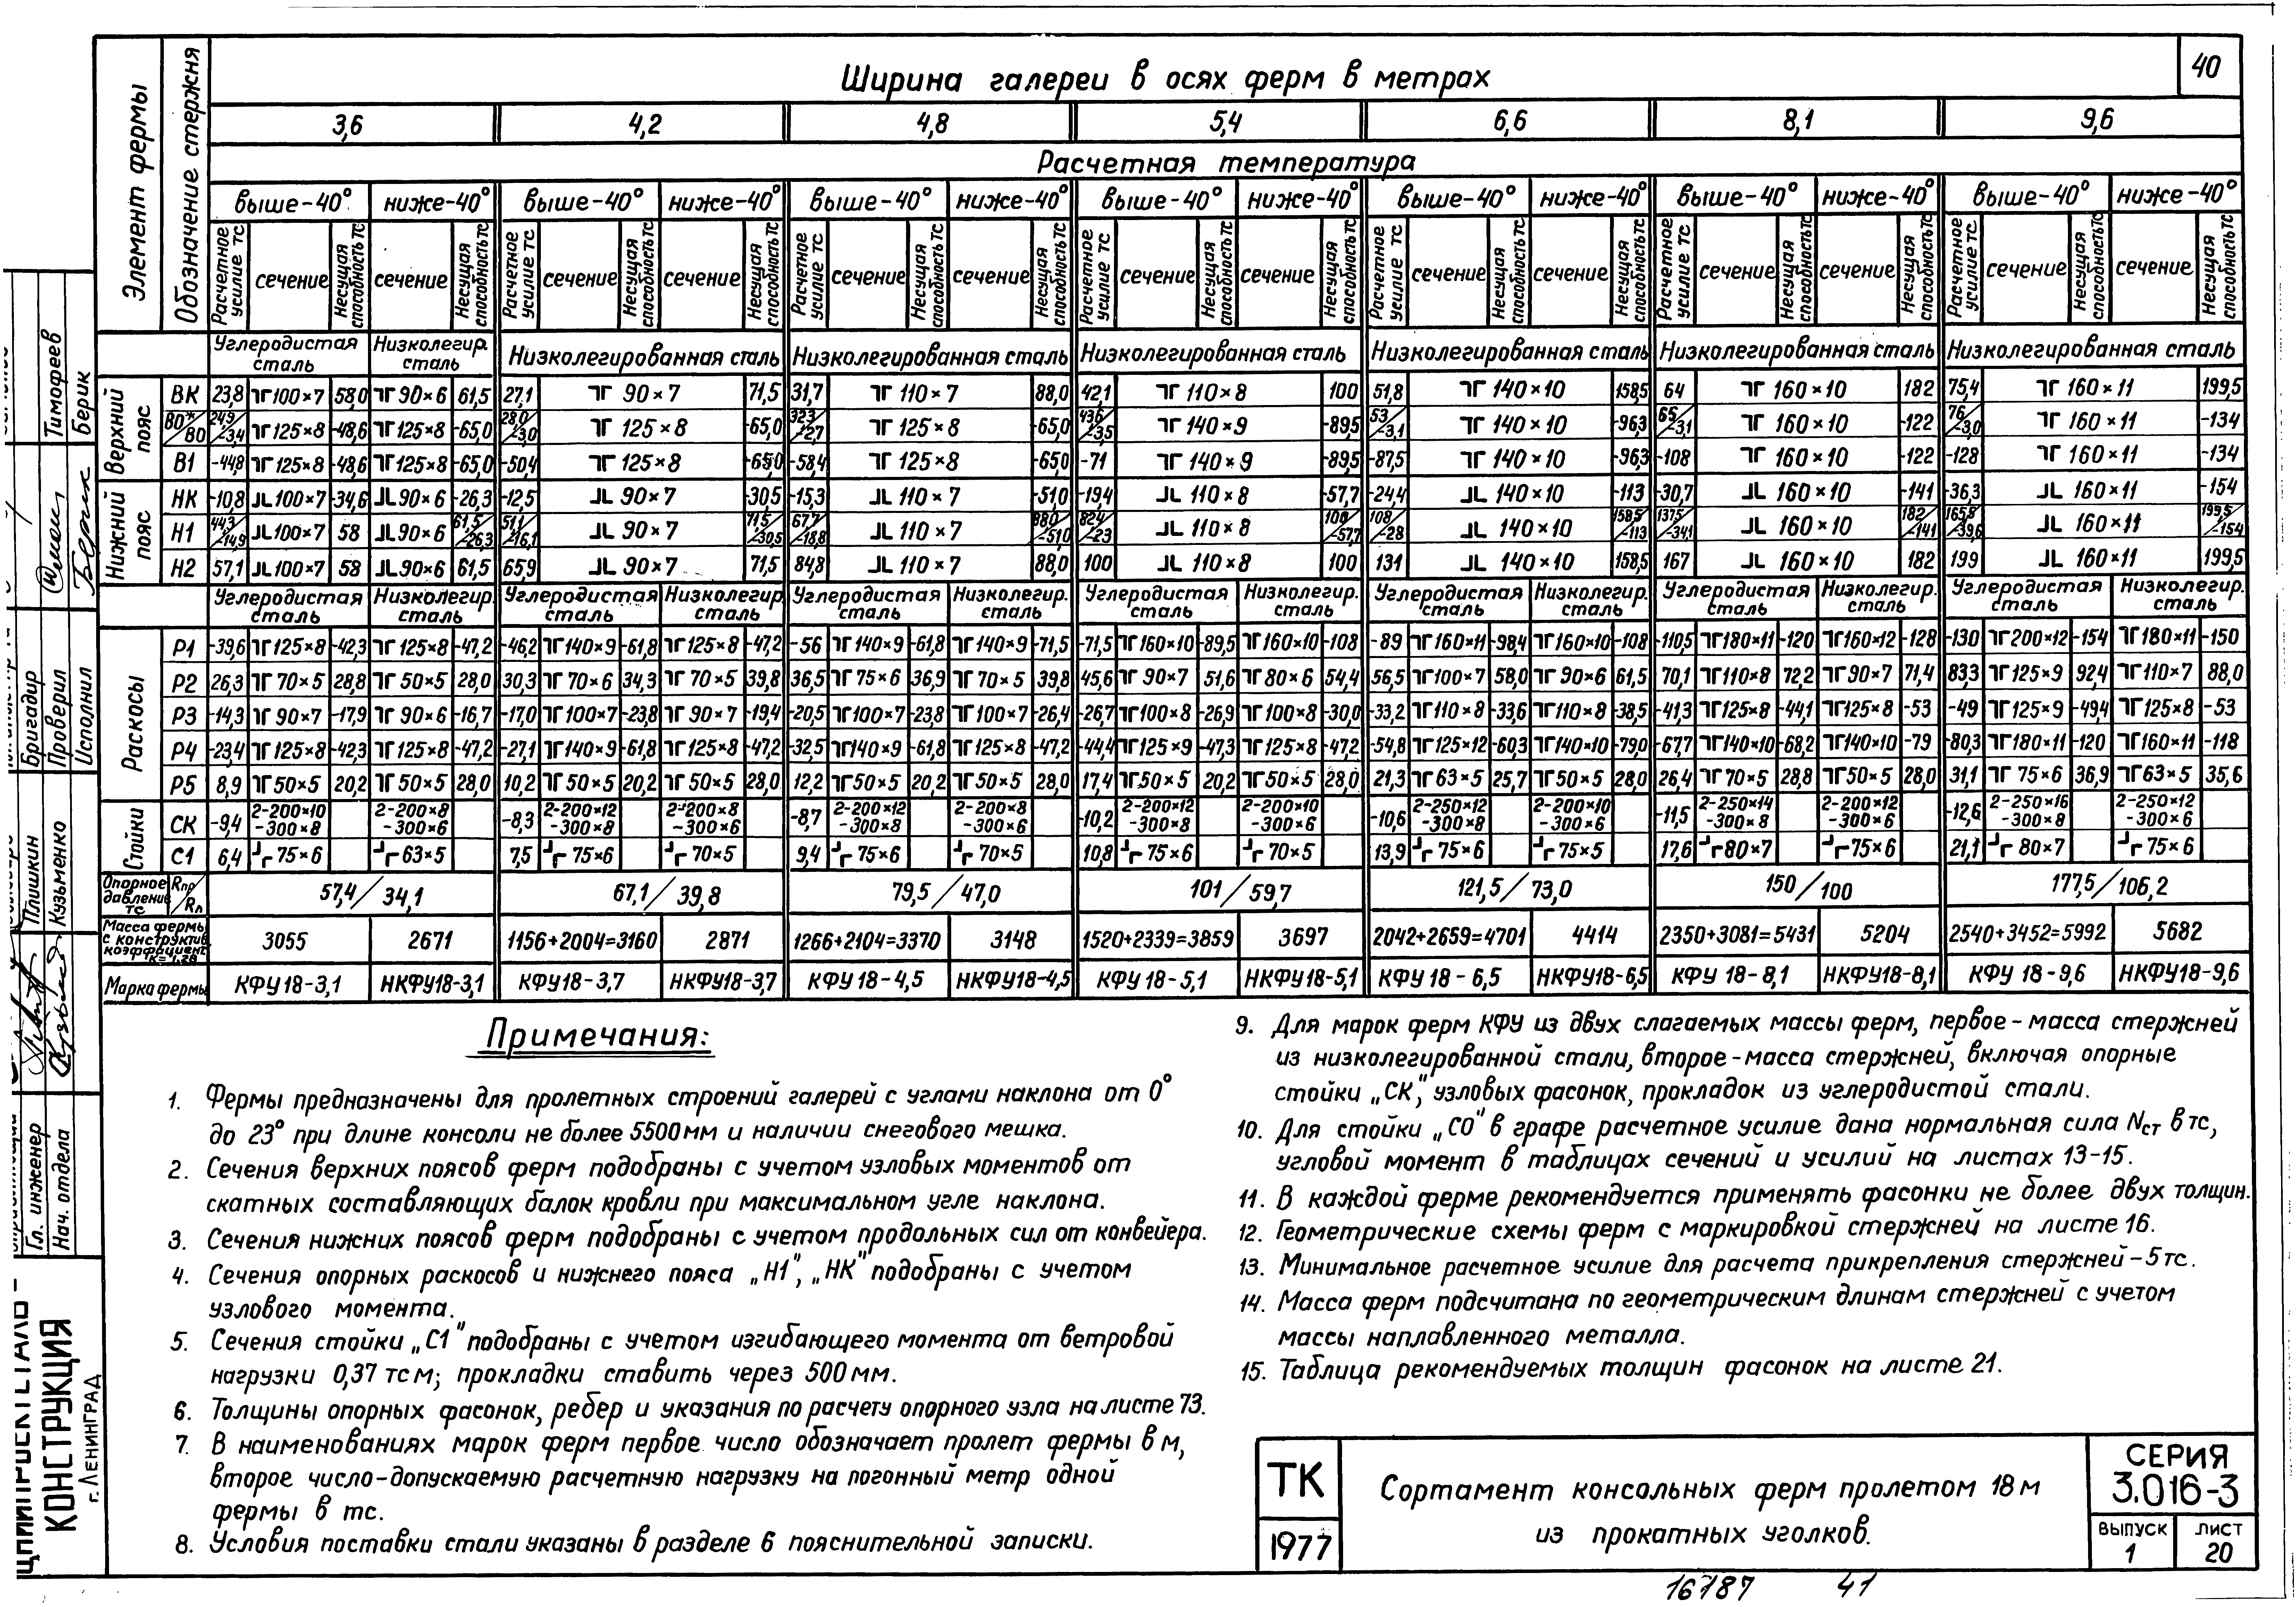 40
Ширина галереи в осях ферм в метрах
Элемент фермы
Обозначение стержня
3,6 4,2 4,8 5,4 6,6 8,1 9,6
Расчетная температура
выше-40° ниже-40° выше-40° ниже-40° выше-40° ниже-40° выше-40° ниже-40° выше-40° ниже-40° выше-40° ниже-40° выше-40° ниже-40°
Расчетное усилие тс сечение Несущая способность тс сечение Несущая способность тс Расчетное усилие тс сечение Несущая способность тс сечение Несущая способность тс Расчетное усилие тс сечение Несущая способность тс сечение Несущая способность тс Расчетное усилие тс сечение Несущая способность тс сечение Несущая способность тс Расчетное усилие тс сечение Несущая способность тс сечение Несущая способность тс Расчетное усилие тс сечение Несущая способность тс сечение Несущая способность тс Расчетное усилие тс сечение Несущая способность тс сечение Несущая способность тс
Углеродистая сталь Низколегир. сталь Низколегированная сталь Низколегированная сталь Низколегированная сталь Низколегированная сталь Низколегированная сталь Низколегированная сталь
Верхний пояс
ВК 23,8 100×7 58,0 90×6 61,5 27,1 90×7 71,5 31,7 110×7 88,0 42,1 110×8 100 51,8 140×10 158,5 64 160×10 182 75,4 160×11 199,5
ВО*/ВО 24,9/-3,4 125×8 -48,6 125×8 -65,0 28,0/-3,0 125×8 -65,0 32,3/-2,7 125×8 -65,0 43,6/-3,5 140×9 -89,5 53/-3,1 140×10 -96,3 65/-3,1 160×10 -122 76/-3,0 160×11 -134
В1 -44,8 125×8 -48,6 125×8 -65,0 -50,4 125×8 -65,0 -58,4 125×8 -65,0 -71 140×9 -89,5 -87,5 140×10 -96,3 -108 160×10 -122 -128 160×11 -134
Нижний пояс
НК -10,8 100×7 -34,6 90×6 -26,3 -12,5 90×7 -30,5 -15,3 110×7 -51,0 -19,4 110×8 -57,7 -24,4 140×10 -113 -30,7 160×10 -141 -36,3 160×11 -154
Н1 44,3/-14,9 100×7 58 90×6 61,5/-26,3 51,1/-16,1 90×7 71,5/-30,5 67,7/-18,8 110×7 88,0/-51,0 82,4/-23 110×8 100/-57,7 108/-28 140×10 158,5/-113 137,5/-34,1 160×10 182/-141 165,8/-39,6 160×11 199,5/-154
Н2 57,1 100×7 58 90×6 61,5 65,9 90×7 71,5 84,8 110×7 88,0 100 110×8 100 131 140×10 158,5 167 160×10 182 199 160×11 199,5
Углеродистая сталь Низколегир. сталь Углеродистая сталь Низколегир. сталь Углеродистая сталь Низколегир. сталь Углеродистая сталь Низколегир. сталь Углеродистая сталь Низколегир. сталь Углеродистая сталь Низколегир. сталь Углеродистая сталь Низколегир. сталь
Раскосы
Р1 -39,6 125×8 -42,3 125×8 -47,2 -46,2 140×9 -61,8 125×8 -47,2 -56 140×9 -61,8 140×9 -71,5 -71,5 160×10 -89,5 160×10 -108 -89 160×11 -98,4 160×10 -108 -110,5 180×11 -120 160×12 -128 -130 200×12 -154 180×11 -150
Р2 26,3 70×5 28,8 50×5 28,0 30,3 70×6 34,3 70×5 39,8 36,5 75×6 36,9 70×5 39,8 45,6 90×7 51,6 80×6 54,4 56,5 100×7 58,0 90×6 61,5 70,1 110×8 72,2 90×7 71,4 83,3 125×9 92,4 110×7 88,0
Р3 -14,3 90×7 -17,9 90×6 -16,7 -17,0 100×7 -23,8 90×7 -19,4 -20,5 100×7 -23,8 100×7 -26,4 -26,7 100×8 -26,9 100×8 -30,0 -33,2 110×8 -33,6 110×8 -38,5 -41,3 125×8 -44,1 125×8 -53 -49 125×9 -49,4 125×8 -53
Р4 -23,4 125×8 -42,3 125×8 -47,2 -27,1 140×9 -61,8 125×8 -47,2 -32,5 140×9 -61,8 125×8 -47,2 -44,4 125×9 -47,3 125×8 -47,2 -54,8 125×12 -60,3 140×10 -79,0 -67,7 140×10 -68,2 140×10 -79 -80,3 180×11 -120 160×11 -118
Р5 8,9 50×5 20,2 50×5 28,0 10,2 50×5 20,2 50×5 28,0 12,2 50×5 20,2 50×5 28,0 17,4 50×5 20,2 50×5 28,0 21,3 63×5 25,7 50×5 28,0 26,4 70×5 28,8 50×5 28,0 31,1 75×6 36,9 63×5 35,6
Стойки
СК -9,4 2-200×10 -300×8 2-200×8 -300×6 -8,3 2-200×12 -300×8 2-200×8 -300×6 -8,7 2-200×12 -300×8 2-200×8 -300×6 -10,2 2-200×12 -300×8 2-200×10 -300×6 -10,6 2-250×12 -300×8 2-200×10 -300×6 -11,5 2-250×14 -300×8 2-200×12 -300×6 -12,6 2-250×16 -300×8 2-250×12 -300×6
С1 6,4 75×6 63×5 7,5 75×6 70×5 9,4 75×6 70×5 10,8 75×6 70×5 13,9 75×6 75×5 17,6 80×7 75×6 21,1 80×7 75×6
Опорное давление тс Rпр/Rл 57,4/34,1 67,1/39,8 79,5/47,0 101/59,7 121,5/73,0 150/100 177,5/106,2
Масса фермы с конструктив. коэффициент. 3055 2671 1156+2004=3160 2871 1266+2104=3370 3148 1520+2339=3859 3697 2042+2659=4701 4414 2350+3081=5431 5204 2540+3452=5992 5682
Марка фермы КФУ18-3,1 НКФУ18-3,1 КФУ18-3,7 НКФУ18-3,7 КФУ18-4,5 НКФУ18-4,5 КФУ18-5,1 НКФУ18-5,1 КФУ18-6,5 НКФУ18-6,5 КФУ18-8,1 НКФУ18-8,1 КФУ18-9,6 НКФУ18-9,6
Примечания:
1. Фермы предназначены для пролетных строений галерей с углами наклона от 0°
до 23° при длине консоли не более 5500мм и наличии снегового мешка.
2. Сечения верхних поясов ферм подобраны с учетом узловых моментов от
скатных составляющих балок кровли при максимальном угле наклона.
3. Сечения нижних поясов ферм подобраны с учетом продольных сил от конвейера.
4. Сечения опорных раскосов и нижнего пояса „Н1", „НК" подобраны с учетом
узлового момента.
5. Сечения стойки „С1" подобраны с учетом изгибающего момента от ветровой
нагрузки 0,37 тсм; прокладки ставить через 500мм.
6. Толщины опорных фасонок, ребер и указания по расчету опорного узла на листе 73.
7. В наименованиях марок ферм первое число обозначает пролет фермы в м,
второе число-допускаемую расчетную нагрузку на погонный метр одной
фермы в тс.
8. Условия поставки стали указаны в разделе 6 пояснительной записки.
9. Для марок ферм КФУ из двух слагаемых массы ферм, первое - масса стержней
из низколегированной стали, второе-масса стержней, включая опорные
стойки „СК", узловых фасонок, прокладок из углеродистой стали.
10. Для стойки „СО" в графе расчетное усилие дана нормальная сила Nст в тс,
угловой момент в таблицах сечений и усилий на листах 13-15.
11. В каждой ферме рекомендуется применять фасонки не более двух толщин.
12. Геометрические схемы ферм с маркировкой стержней на листе 16.
13. Минимальное расчетное усилие для расчета прикрепления стержней-5тс.
14. Масса ферм подсчитана по геометрическим длинам стержней с учетом
массы наплавленного металла.
15. Таблица рекомендуемых толщин фасонок на листе 21.
ТК
1977
Сортамент консольных ферм пролетом 18м
из прокатных уголков.
СЕРИЯ
3.016-3
ВЫПУСК
1
ЛИСТ
20
16787 41
Тимофеев
Берик
Бригадир
Проверил
Исполнил
Плишкин
Кузьменко
Гл. инженер
Нач. отдела
КОНСТРУКЦИЯ
г. ЛЕНИНГРАД